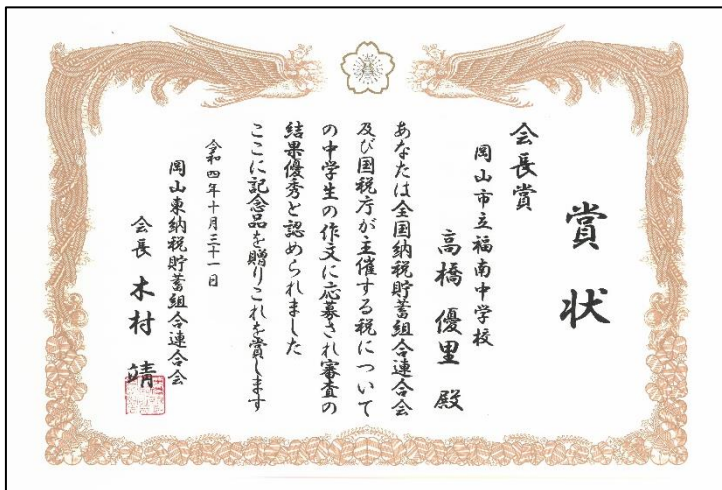 賞状
会長賞
岡山市立福南中学校
高橋優里殿
あなたは全国納税貯蓄組合連合会
及び国税庁が主催する税について
の中学生の作文に応募され審査の
結果優秀と認められました
ここに記念品を贈りこれを賞します
令和四年十月三十一日
岡山東納税貯蓄組合連合会
会長 木村靖